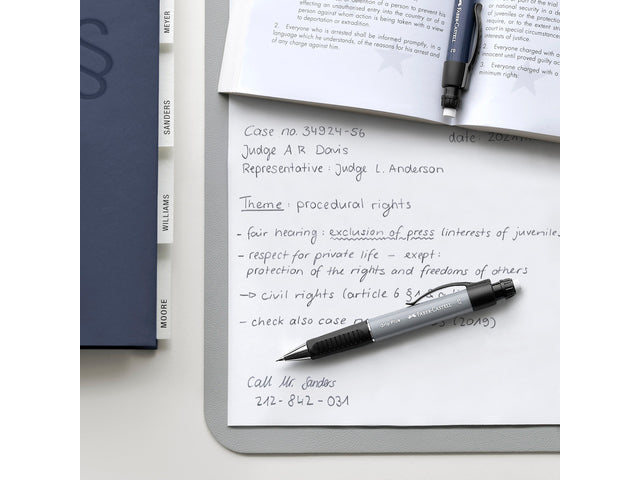 §
MEYER
SANDERS
WILLIAMS
MOORE
effecting an unauthorised entry into the country or of a
person against whom action is being taken with a view
to deportation or extradition.
2. Everyone who is arrested shall be informed promptly, in a
language which he understands, of the reasons for his arrest and
of any charge against him.
or national security in a d
of juveniles or the protectio
require, or to the extent stri
court in special circumstances
interests of justice.
2. Everyone charged with a
nocent until proved guilty ac
3. Everyone charged with
minimum rights:
FABER-CASTELL
Case no. 34924-56
date: 202
Judge A R Davis
Representative : Judge L. Anderson
Theme : procedural rights
- fair hearing : exclusion of press (interests of juvenile
- respect for private life - exept:
protection of the rights and freedoms of others
-> civil rights (article 6 §1
- check also case (2019)
Grip Plus FABER-CASTELL
Call Mr. Sanders
212-842-031